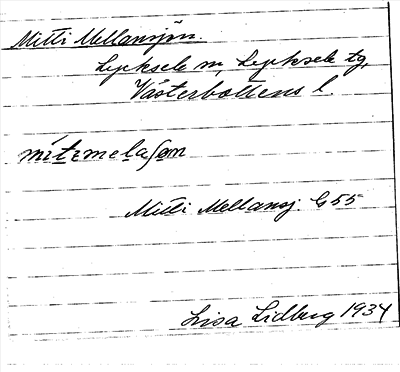 Mitti Mellansjön.
Lycksele sn, Lycksele tg,
Västerbottens l.
mitimelaſøn
Mitti Mellansj. G55
Lisa Lidberg 1934